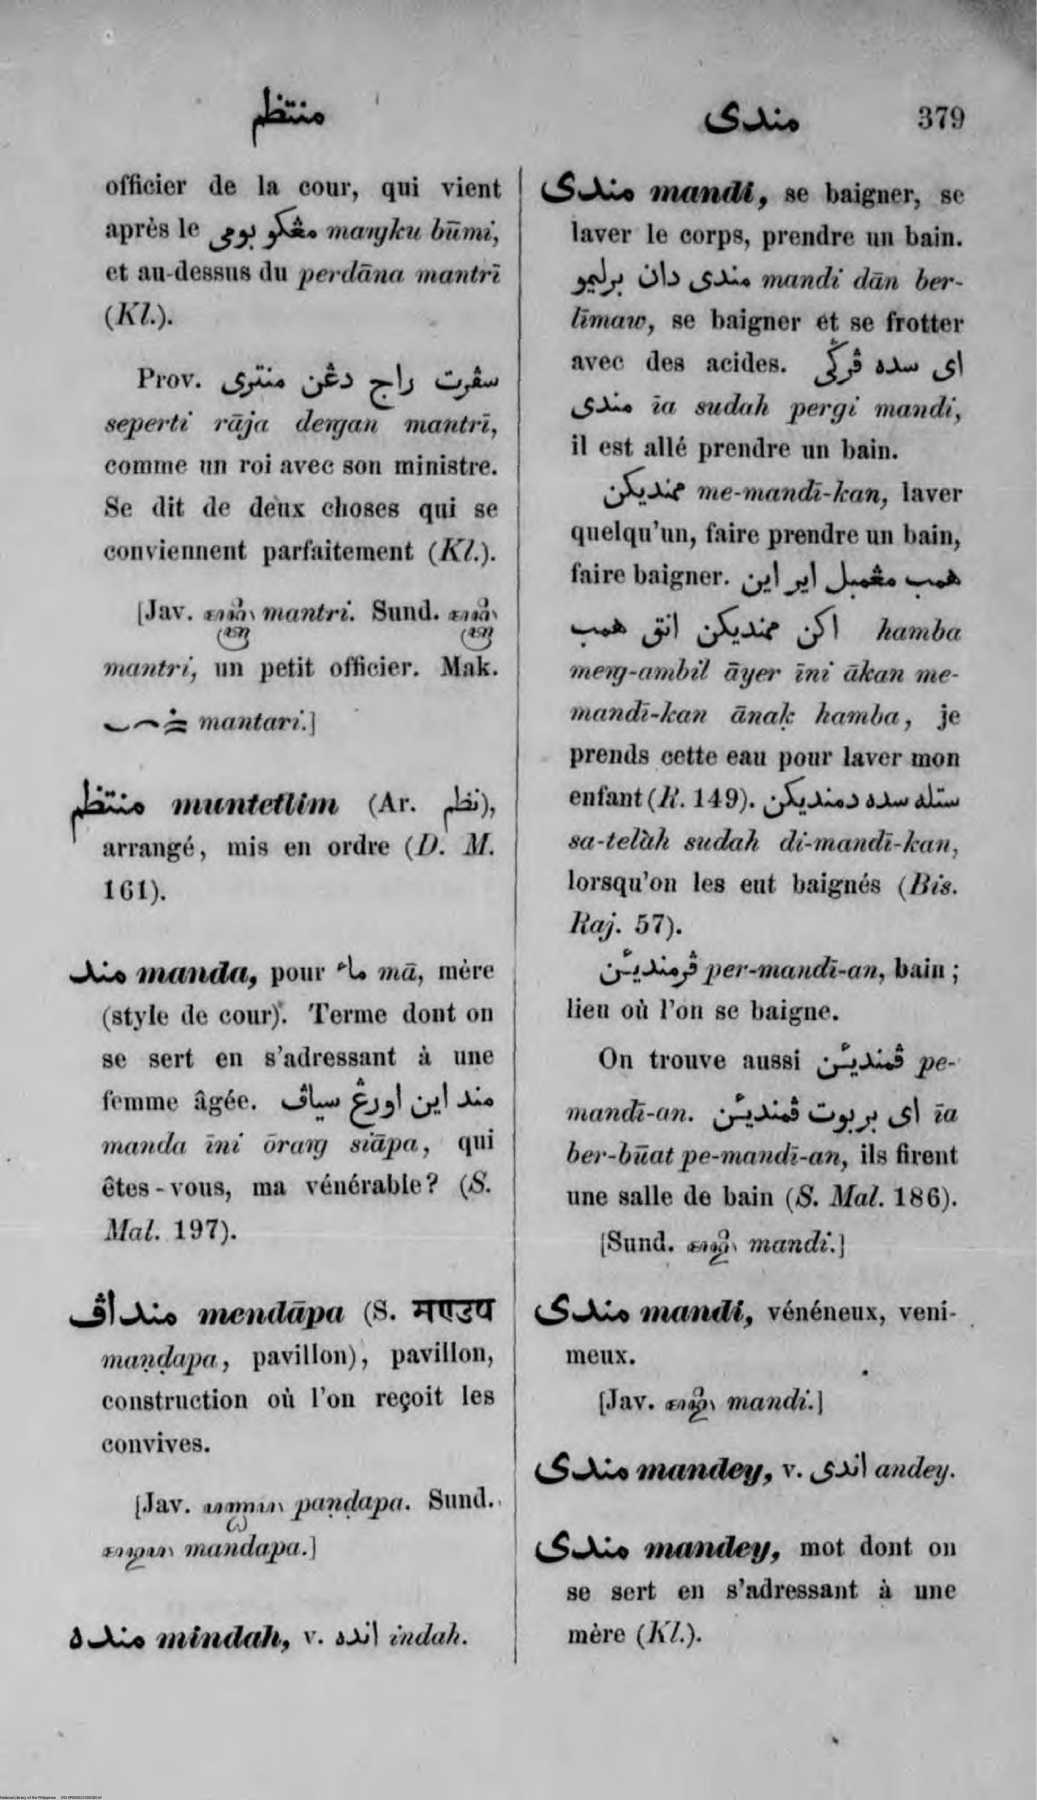 منتظم
مندى
379
officier de la cour, qui vient
après le مڠكو بومى maṅku būmi,
et au-dessus du perdāna mantrī
(Kl.).
Prov. سڤرت راج دڠن منترى
seperti rāja deṅan mantrī,
comme un roi avec son ministre.
Se dit de deux choses qui se
conviennent parfaitement (Kl.).
[Jav. mantri. Sund.
mantri, un petit officier. Mak.
mantari.]
منتظم muntetlim (Ar. نظم),
arrangé, mis en ordre (D. M.
161).
مند manda, pour ماء mā, mère
(style de cour). Terme dont on
se sert en s'adressant à une
femme âgée. مند اين اورڠ سياڤ
manda īni ōraṅ siāpa, qui
êtes-vous, ma vénérable? (S.
Mal. 197).
منداڤ mendāpa (S. मण्डप
maṇḍapa, pavillon), pavillon,
construction où l'on reçoit les
convives.
[Jav. paṇḍapa. Sund.
mandapa.]
منده mindah, v. انده indah.
مندى mandi, se baigner, se
laver le corps, prendre un bain.
مندى دان برليمو mandi dān ber-
līmaw, se baigner et se frotter
avec des acides. اى سده ڤرگى
مندى īa sudah pergi mandi,
il est allé prendre un bain.
ممنديكن me-mandī-kan, laver
quelqu'un, faire prendre un bain,
faire baigner. همب مڠمبل اير اين
اكن ممنديكن انق همب hamba
meṅ-ambil āyer īni ākan me-
mandī-kan ānaḳ hamba, je
prends cette eau pour laver mon
enfant (R. 149). ستله سده دمنديكن
sa-telàh sudah di-mandī-kan,
lorsqu'on les eut baignés (Bis.
Raj. 57).
ڤرمندين per-mandī-an, bain;
lieu où l'on se baigne.
On trouve aussi ڤمندين pe-
mandī-an. اى بربوت ڤمندين īa
ber-būat pe-mandī-an, ils firent
une salle de bain (S. Mal. 186).
[Sund. mandi.]
مندى mandi, vénéneux, veni-
meux.
[Jav. mandi.]
مندى mandey, v. اندى andey.
مندى mandey, mot dont on
se sert en s'adressant à une
mère (Kl.).